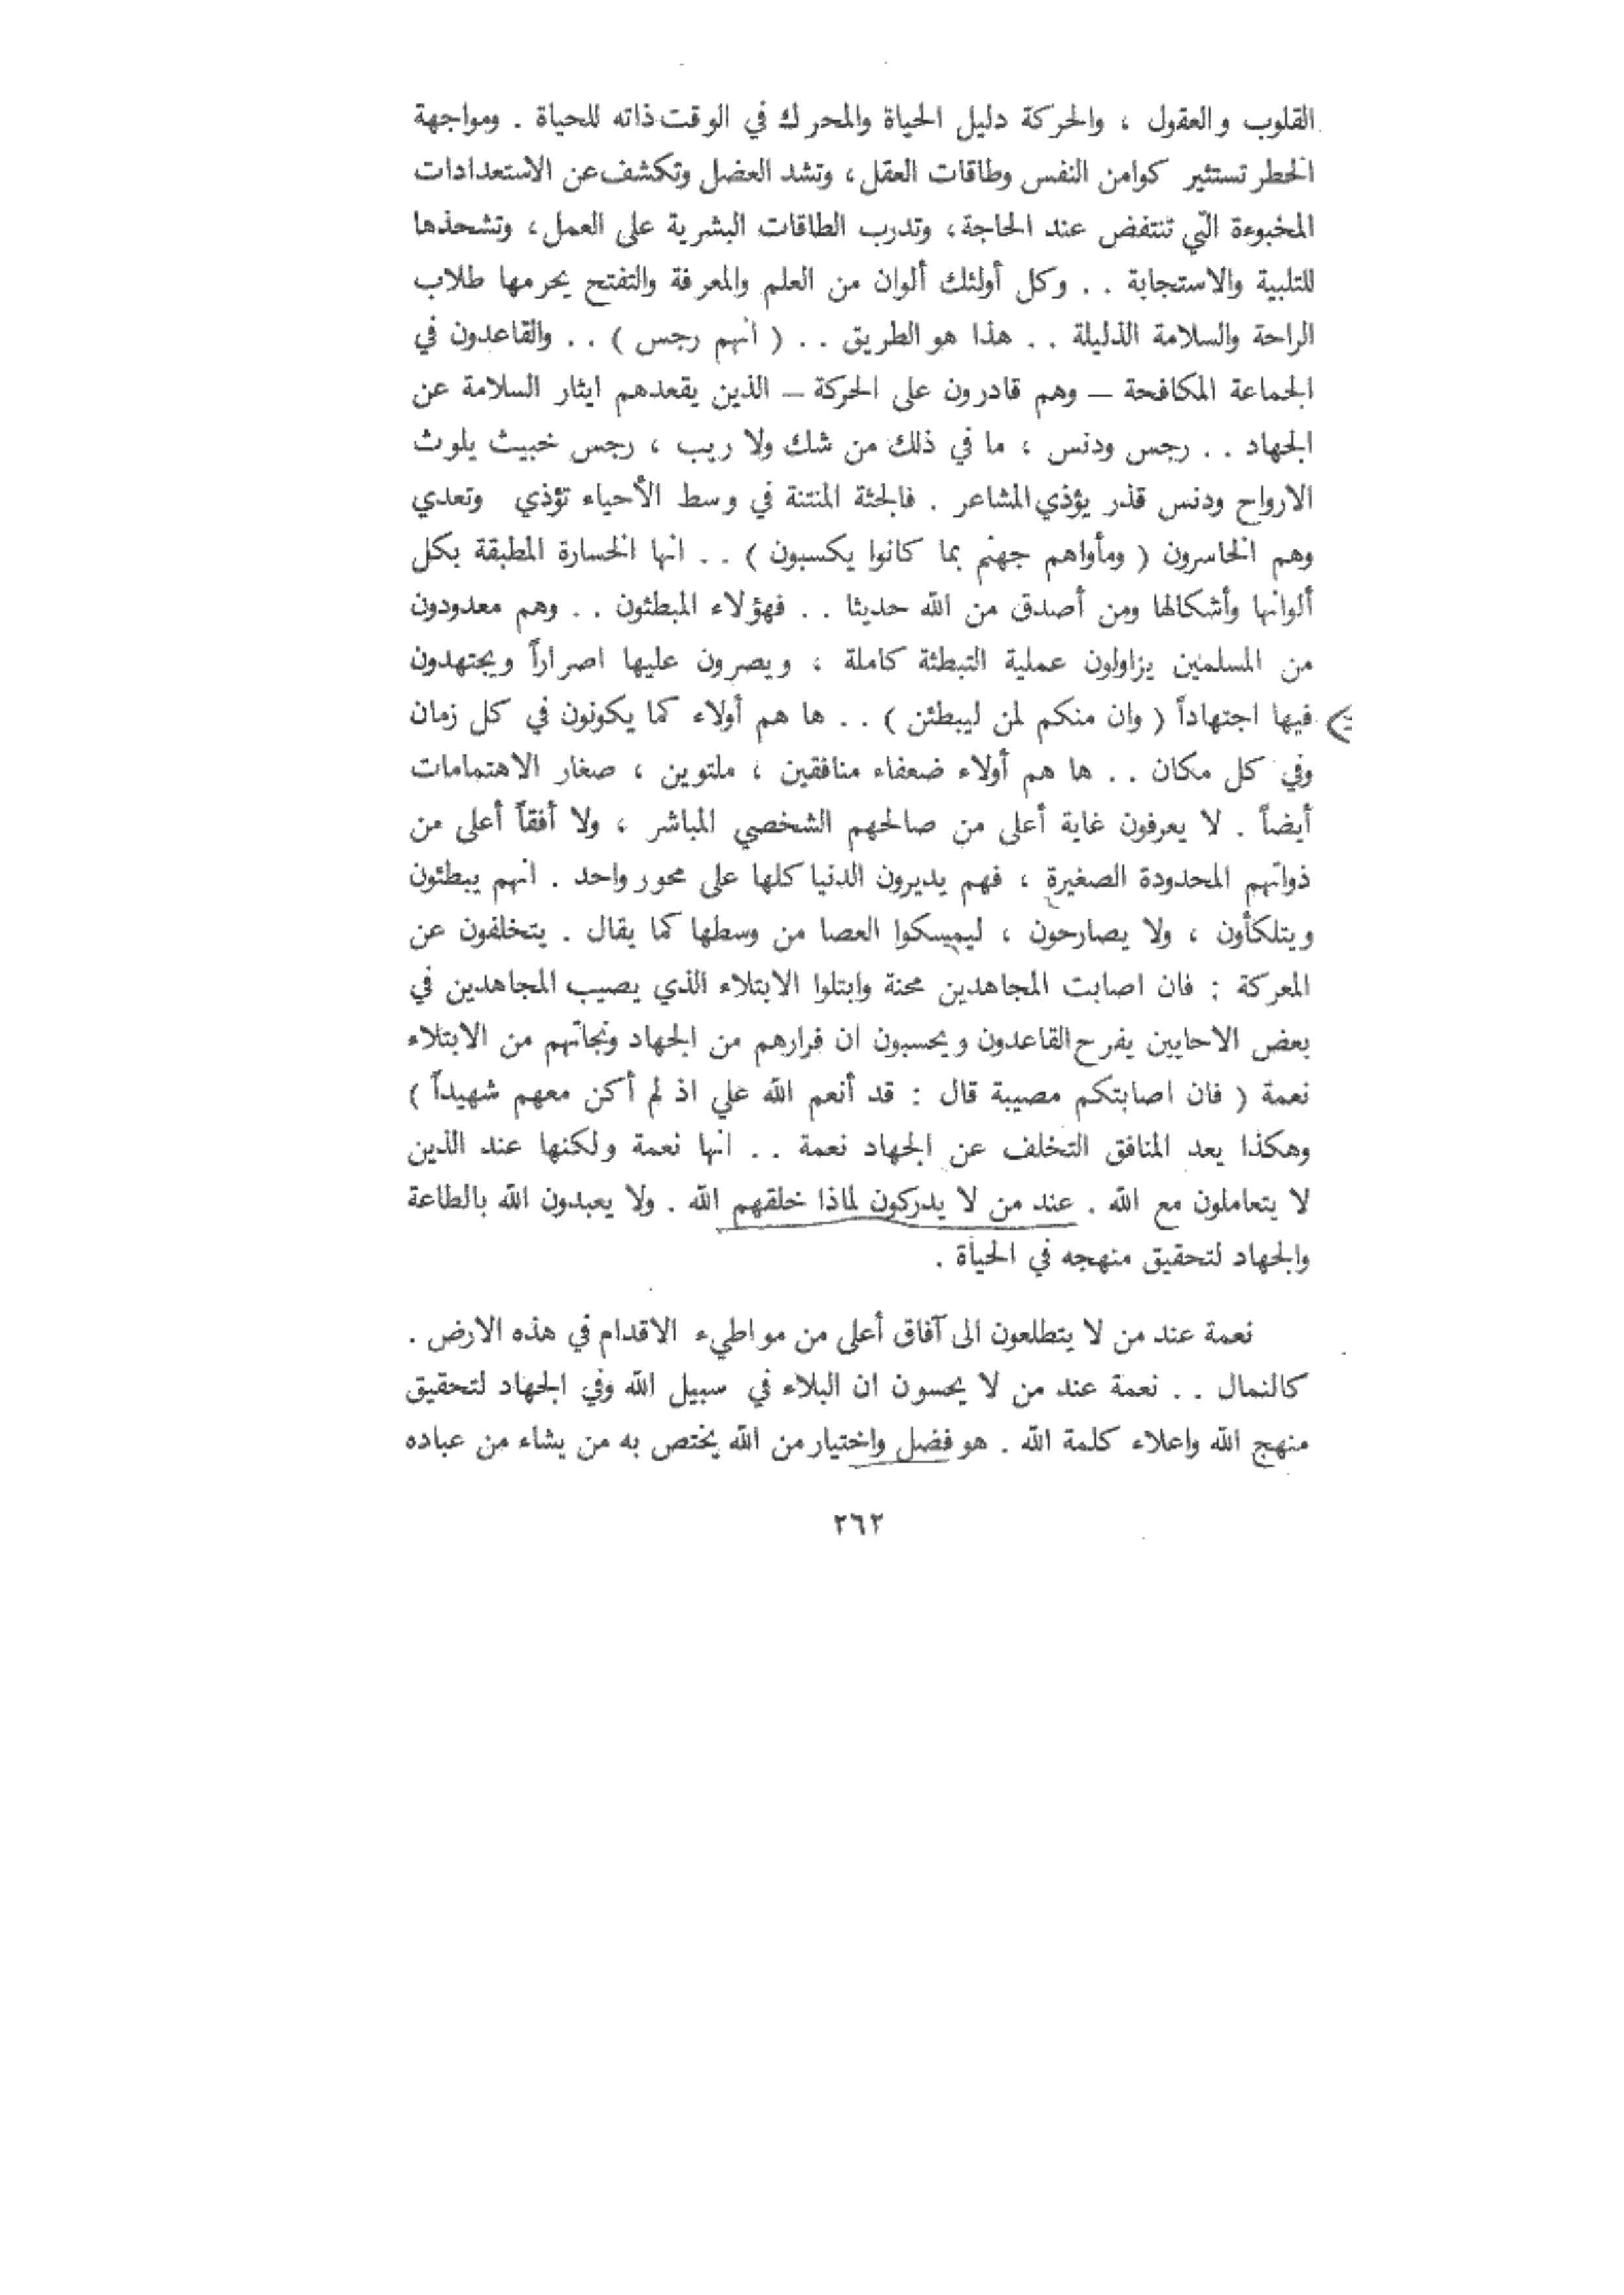 القلوب والعقول ، والحركة دليل الحياة والمحرك في الوقت ذاته للحياة . ومواجهة
الخطر تستثير كوامن النفس وطاقات العقل ، وتشد العضل وتكشف عن الاستعدادات
المخبوءة التي تنتفض عند الحاجة ، وتدرب الطاقات البشرية على العمل ، وتشحذها
للتلبية والاستجابة . . وكل أولئك ألوان من العلم والمعرفة والتفتح يحرمها طلاب
الراحة والسلامة الذليلة . . هذا هو الطريق . . ( انهم رجس ) . . والقاعدون في
الجماعة المكافحة – وهم قادرون على الحركة – الذين يقعدهم ايثار السلامة عن
الجهاد . . رجس ودنس ، ما في ذلك من شك ولا ريب ، رجس خبيث يلوث
الارواح ودنس قذر يؤذي المشاعر . فالجثة المنتنة في وسط الأحياء تؤذي وتعدي
وهم الخاسرون ( ومأواهم جهنم بما كانوا يكسبون ) . . انها الخسارة المطبقة بكل
ألوانها وأشكالها ومن أصدق من الله حديثا . . فهؤلاء المبطئون . . وهم معدودون
من المسلمين يزاولون عملية التبطئة كاملة ، ويصرون عليها اصراراً ويجتهدون
فيها اجتهاداً ( وان منكم لمن ليبطئن ) . . ها هم أولاء كما يكونون في كل زمان
وفي كل مكان . . ها هم أولاء ضعفاء منافقين ، ملتوين ، صغار الاهتمامات
أيضاً . لا يعرفون غاية أعلى من صالحهم الشخصي المباشر ، ولا أفقاً أعلى من
ذواتهم المحدودة الصغيرة ، فهم يديرون الدنيا كلها على محور واحد . انهم يبطئون
ويتلكأون ، ولا يصارحون ، ليمسكوا العصا من وسطها كما يقال . يتخلفون عن
المعركة : فان اصابت المجاهدين محنة وابتلوا الابتلاء الذي يصيب المجاهدين في
بعض الاحايين يفرح القاعدون ويحسبون ان فرارهم من الجهاد ونجاتهم من الابتلاء
نعمة ( فان اصابتكم مصيبة قال : قد أنعم الله علي اذ لم أكن معهم شهيداً )
وهكذا يعد المنافق التخلف عن الجهاد نعمة . . انها نعمة ولكنها عند الذين
لا يتعاملون مع الله . عند من لا يدركون لماذا خلقهم الله . ولا يعبدون الله بالطاعة
والجهاد لتحقيق منهجه في الحياة .
نعمة عند من لا يتطلعون الى آفاق أعلى من مواطيء الاقدام في هذه الارض .
كالنمال . . نعمة عند من لا يحسون ان البلاء في سبيل الله وفي الجهاد لتحقيق
منهج الله واعلاء كلمة الله . هو فضل واختيار من الله يختص به من يشاء من عباده
٢٦٢